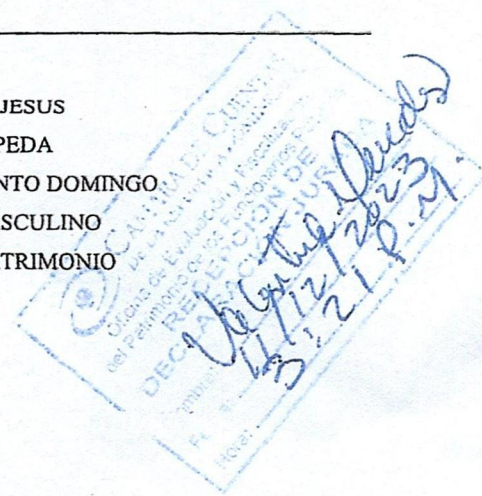 JESUS
PEDA
NTO DOMINGO
SCULINO
TRIMONIO
CAMARA DE CUENTAS
Oficina de Evaluación y Fiscalización
del Patrimonio de los Funcionarios
RECEPCION DE
DECLARACION JURADA
11/12/2023
3:21 P.M.
Hora: